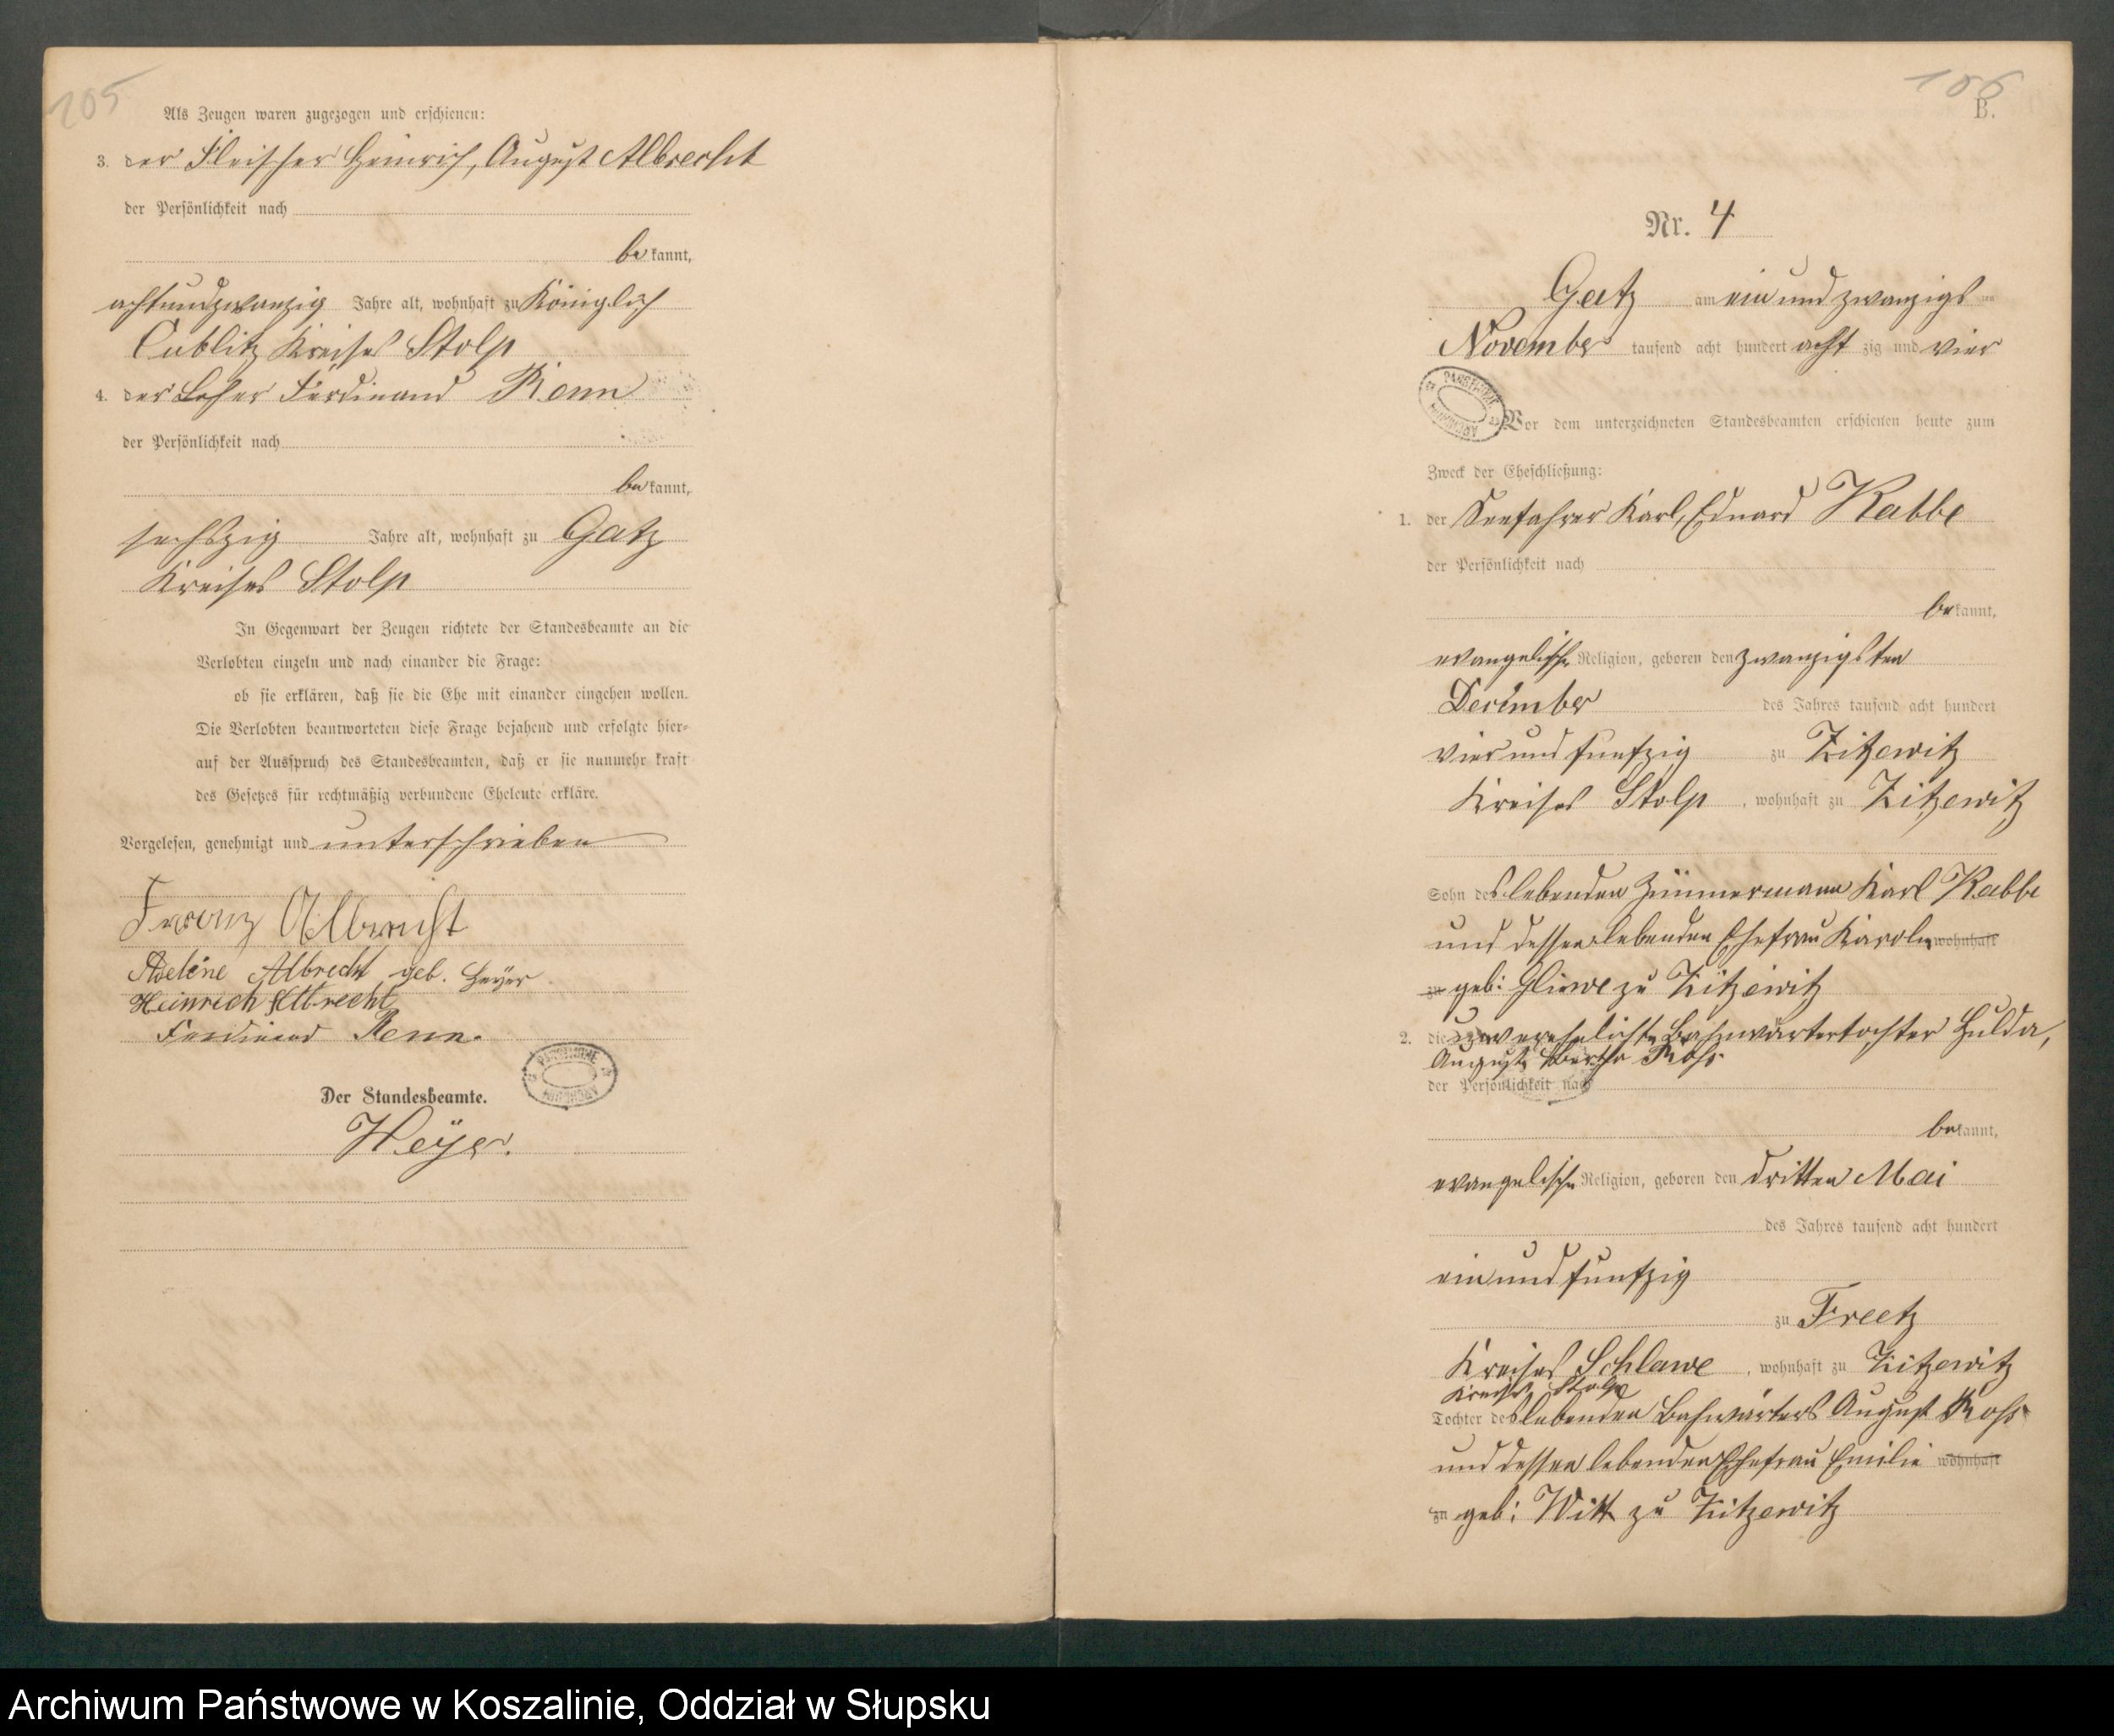 205
Als Zeugen waren zugezogen und erschienen:
3. der Fleischer Heinrich, August Albrecht
der Persönlichkeit nach
be kannt,
achtundzwanzig Jahre alt, wohnhaft zu Königlich
Cublitz Kreises Stolp
4. der Ferdinand Renn
der Persönlichkeit nach
be kannt,
sechszig Jahre alt, wohnhaft zu Gatz
Kreises Stolp
In Gegenwart der Zeugen richtete der Standesbeamte an die
Verlobten einzeln und nach einander die Frage:
ob sie erklären, daß sie die Ehe mit einander eingehen wollen.
Die Verlobten beantworteten diese Frage bejahend und erfolgte hier-
auf der Ausspruch des Standesbeamten, daß er sie nunmehr kraft
des Gesetzes für rechtmäßig verbundene Eheleute erkläre.
Vorgelesen, genehmigt und unterschrieben
Franz Albrecht
Adeline Albrecht geb. Heyer
Heinrich Albrecht
Ferdinand Renn.
Der Standesbeamte.
Heÿer.
106
B.
Nr. 4
Gatz am ein und zwanzigs ten
November tausend acht hundert acht zig und vier
Vor dem unterzeichneten Standesbeamten erschienen heute zum
Zweck der Eheschließung:
1. der Seefahrer Karl, Eduard Rabbe
der Persönlichkeit nach
be kannt,
evangelischer Religion, geboren den zwanzigsten
December des Jahres tausend acht hundert
vier und funfzig zu Zitzewitz
Kreises Stolp, wohnhaft zu Zitzewitz
Sohn des lebenden Zimmermann Karl Rabbe
und dessen lebenden Ehefrau Karoline wohnhaft
zu geb: zu Zitzewitz
2. die unverehelichte Bahnwärtertochter Hulda,
Auguste Bertha Roß
der Persönlichkeit nach
be kannt,
evangelischer Religion, geboren den dritten Mai
des Jahres tausend acht hundert
ein und funfzig
zu Freetz
Kreises Schlawe, wohnhaft zu Zitzewitz
Kreises Stolp
Tochter des lebenden Bahnwärters August Roß
und dessen lebenden Ehefrau Emilie wohnhaft
zu geb: Witt zu Zitzewitz
Archiwum Państwowe w Koszalinie, Oddział w Słupsku